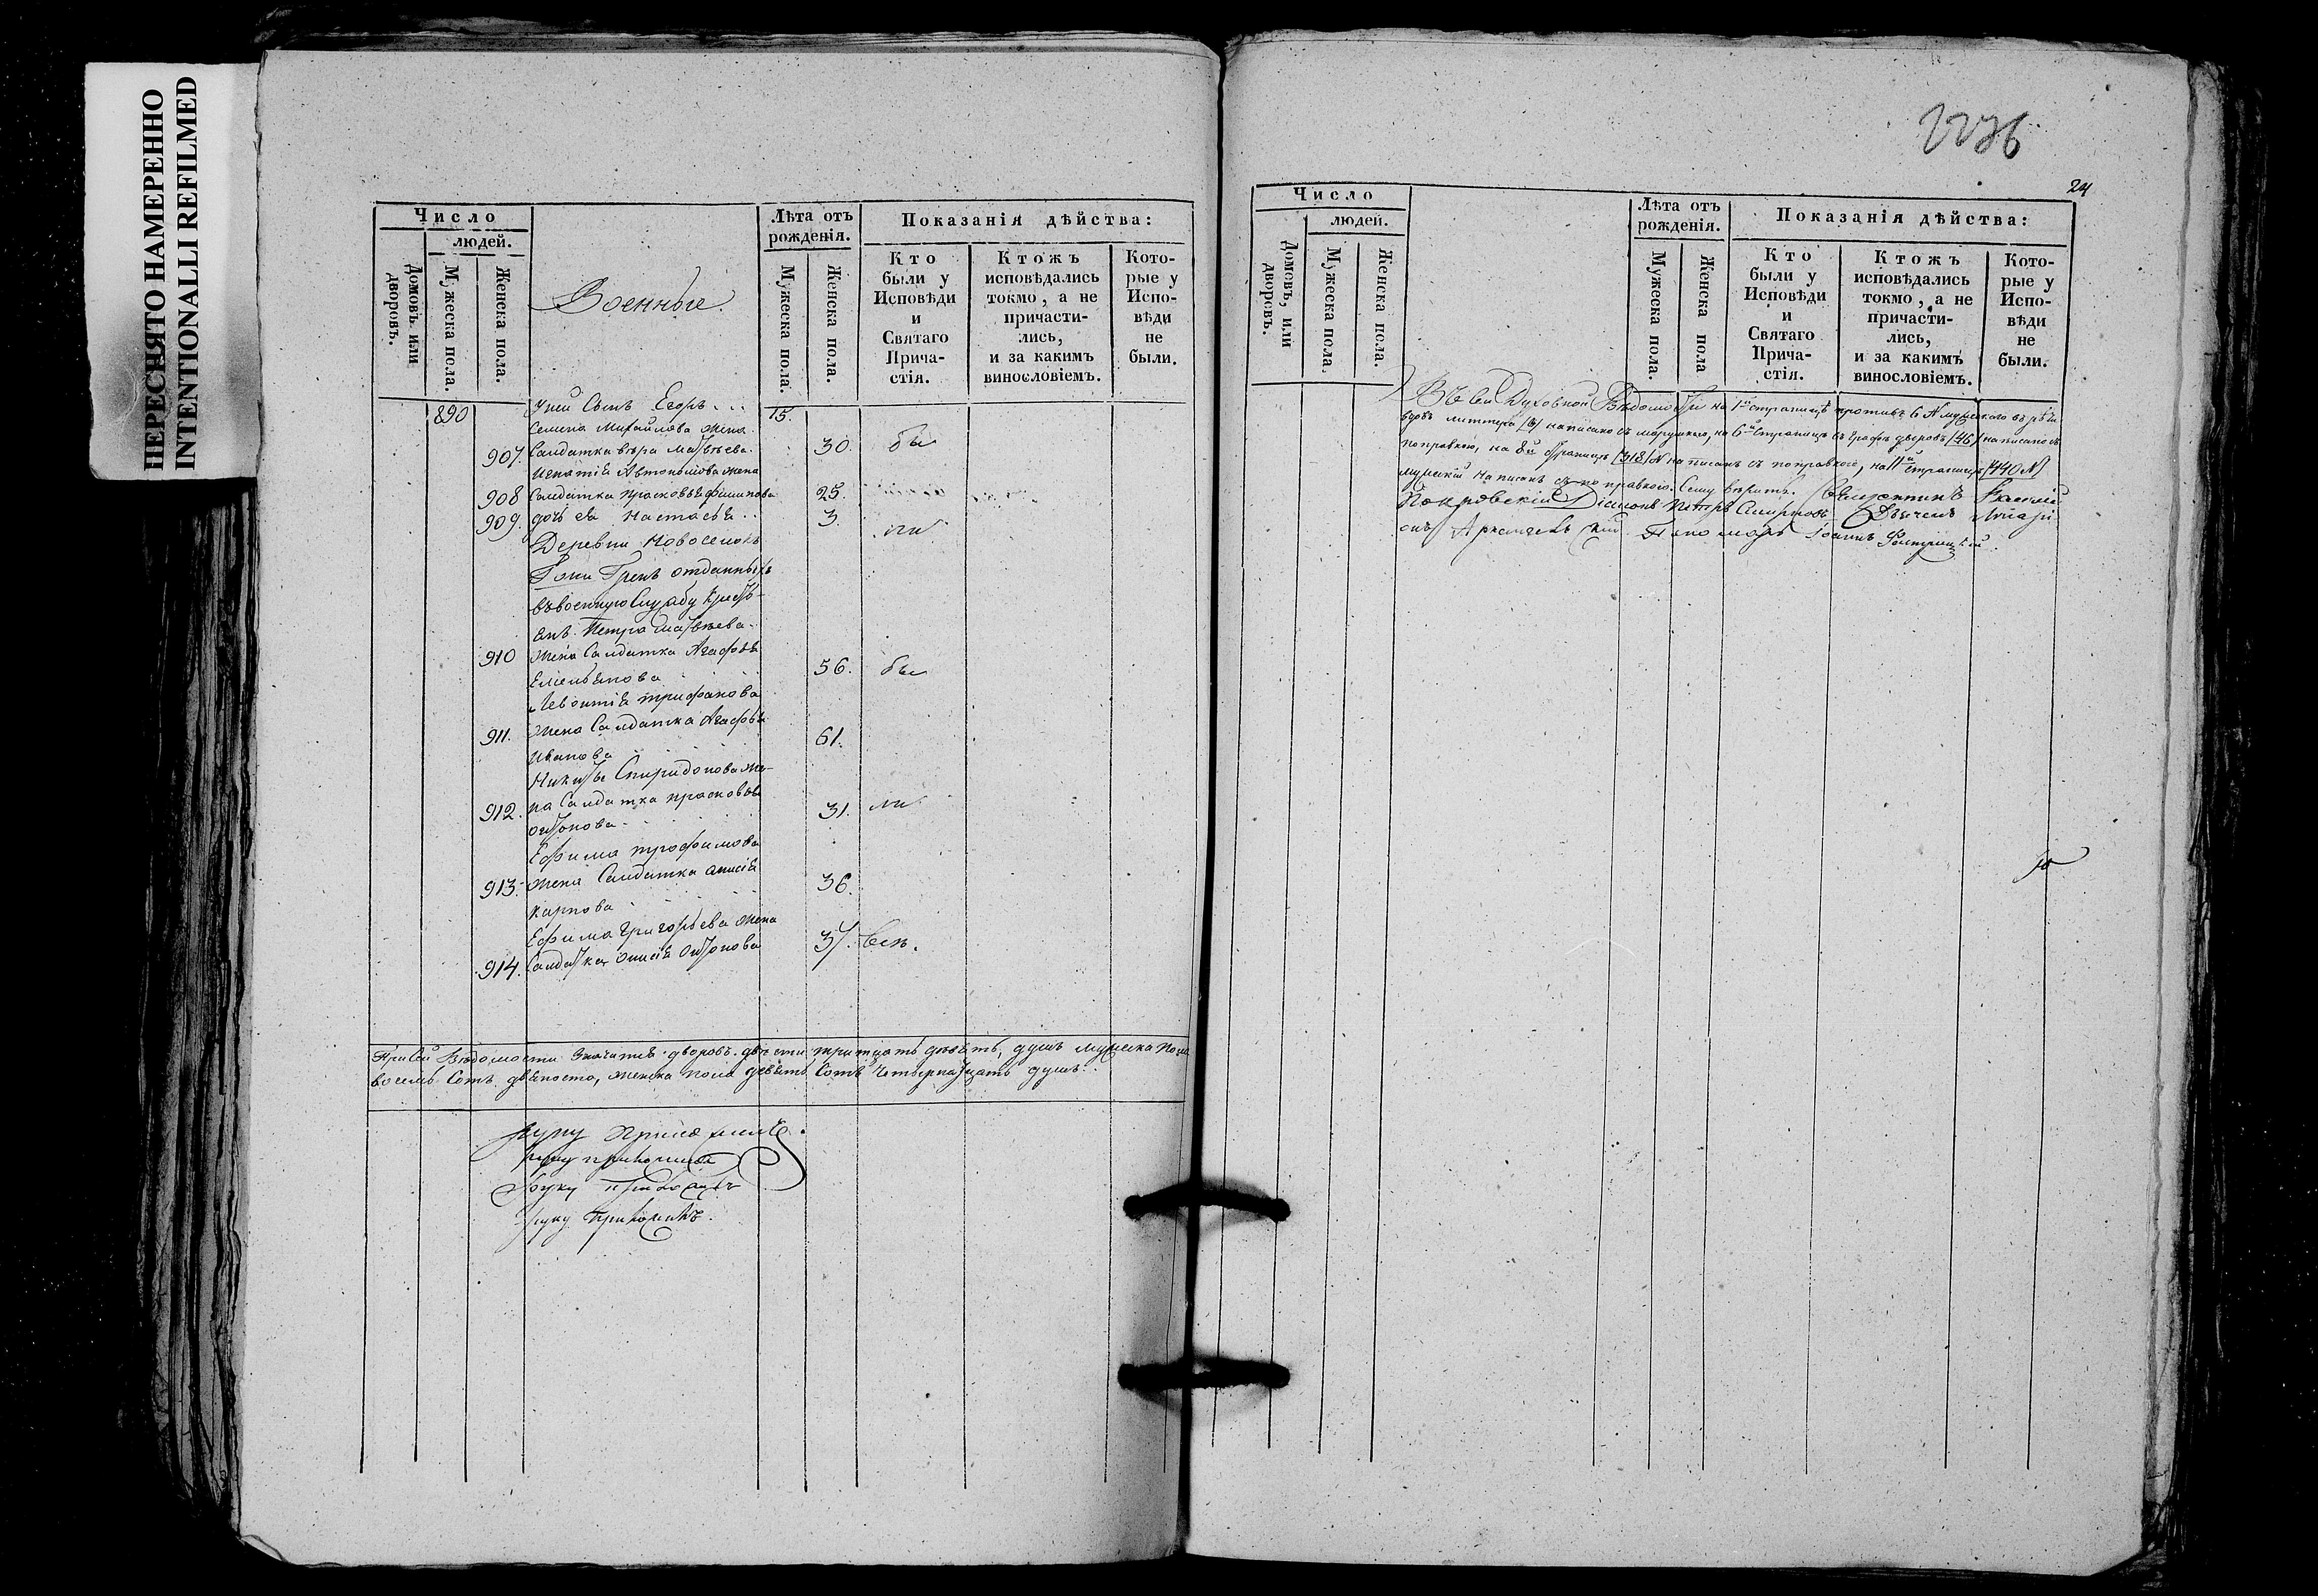 НЕРЕСНЯТО НАМЕРЕННО
INTENTIONALLI REFILMED
Число
людей.
Домовъ или дворовъ.
Мужеска пола.
Женска пола.
Военные.
Лѣта отъ рожденія.
Мужеска пола.
Женска пола.
Показанія дѣйства:
Кто были у Исповѣди и Святаго Причастія.
Ктожъ исповѣдались токмо, а не причастились, и за какимъ винословіемъ.
Которые у Исповѣди не были.
890 У ней Сынъ Егоръ 15.
Семена Михайлова жена
907. Салдатка вѣра матвѣева 30. бы
Игнатія Автономова жена
908 Салдатка Прасковья филипова 25.
909. дочь ея Настасья 3. ли
Деревни Новоселокъ
отданныхъ
въ военную Службу кресть-
янъ. Петра Матвѣева
910 жена Салдатка Агафья 56. бы
Емельянова
Левонтія трифанова
911. жена Салдатка Агафья 61.
Иванова
Никиты Спиридонова же-
912. на Салдатка прасковья 31. ли
антонова
Ефима трофимова
913. жена Салдатка анисія 36.
карпова
Ефима Григорьева жена
914. Салдатка анисія антонова 37. всѣ.
При сей Вѣдомости Значится дворовъ двѣсти тритцать девять, душъ мужеска пола
восемь Сотъ девяносто, женска пола девять Сотъ четырнатцать душъ.
руку приложилъ.
руку приложилъ
руку приложилъ
руку приложилъ.
2236
24
Число
людей.
Домовъ, или дворовъ.
Мужеска пола.
Женска пола.
Лѣта отъ рожденія.
Мужеска пола.
Женска пола
Показанія дѣйства:
Кто были у Исповѣди и Святаго Причастія.
Ктожъ исповѣдались токмо, а не причастились, и за какимъ винословіемъ.
Которые у Исповѣди не были.
Въ сей Духовной Вѣдомости на 1й страницѣ противъ 6 №
литтера написано съ на 6й страницѣ въ графѣ дворовъ /46/ написано съ
поправкою, на 8й страницѣ /318/ № написанъ съ поправкою, на 11й страницѣ /440 №/
мужескій написанъ съ поправкою. Сему вѣрить. Священникъ Василій
Покровскій Діаконъ Петръ Смирновъ Дьячекъ
Пономарь Іоаннъ